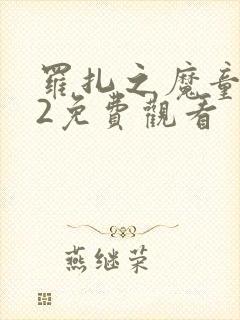 罗扎之魔童
2免費觀看
燕继荣